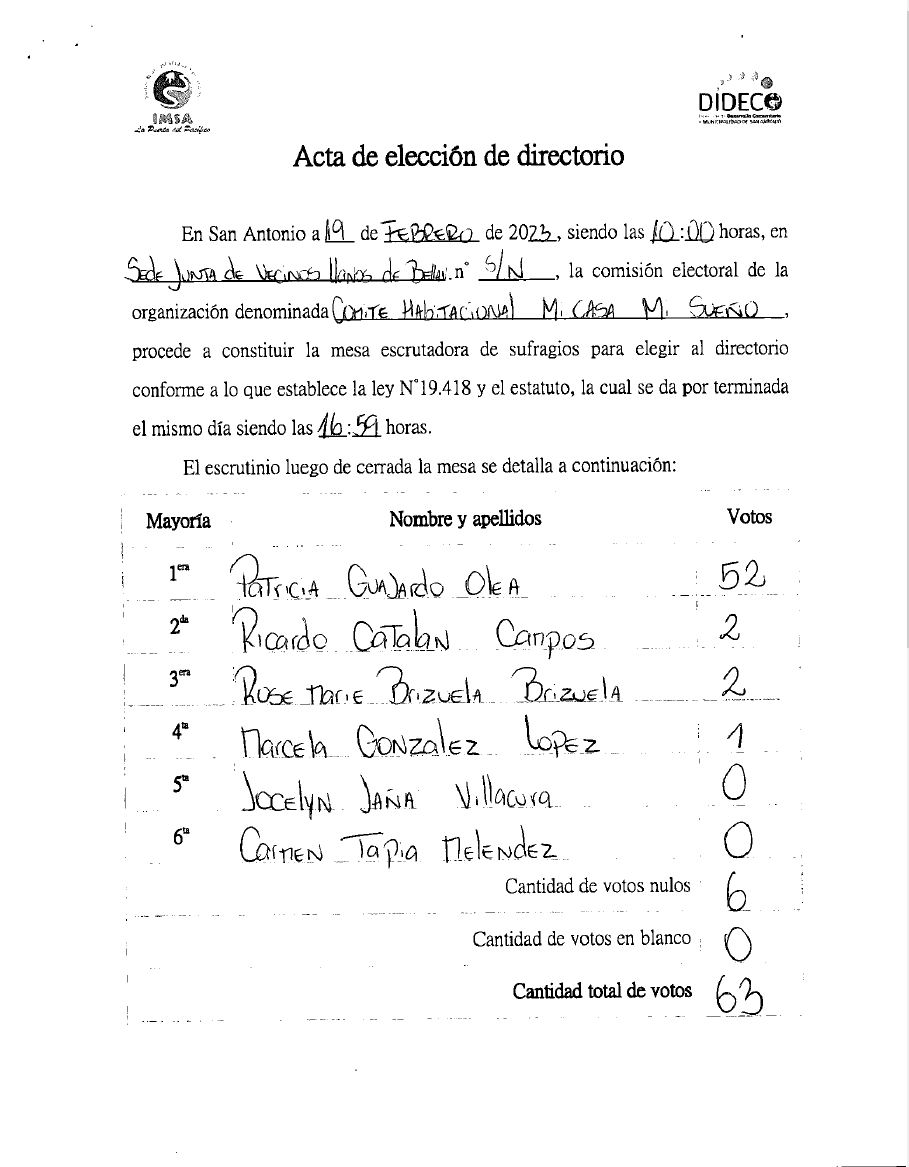 IMSA
La Puerta del Pacífico
DIDECO
Acta de elección de directorio
En San Antonio a 19 de FEBRERO de 2023, siendo las 10:00 horas, en
Sede Junta de Vecinos llanos de n° S/N, la comisión electoral de la
organización denominada Comite Habitacional Mi Casa Mi Sueño,
procede a constituir la mesa escrutadora de sufragios para elegir al directorio
conforme a lo que establece la ley N°19.418 y el estatuto, la cual se da por terminada
el mismo día siendo las 16:59 horas.
El escrutinio luego de cerrada la mesa se detalla a continuación:
Mayoría Nombre y apellidos Votos
1era Patricia Guajardo Olea 52
2da Ricardo Catalan Campos 2
3era Rose Marie Brizuela Brizuela 2
4ta Marcela Gonzalez Lopez 1
5ta Jocelyn Jaña Villacura 0
6ta Carmen Tapia Melendez 0
Cantidad de votos nulos 6
Cantidad de votos en blanco 0
Cantidad total de votos 63